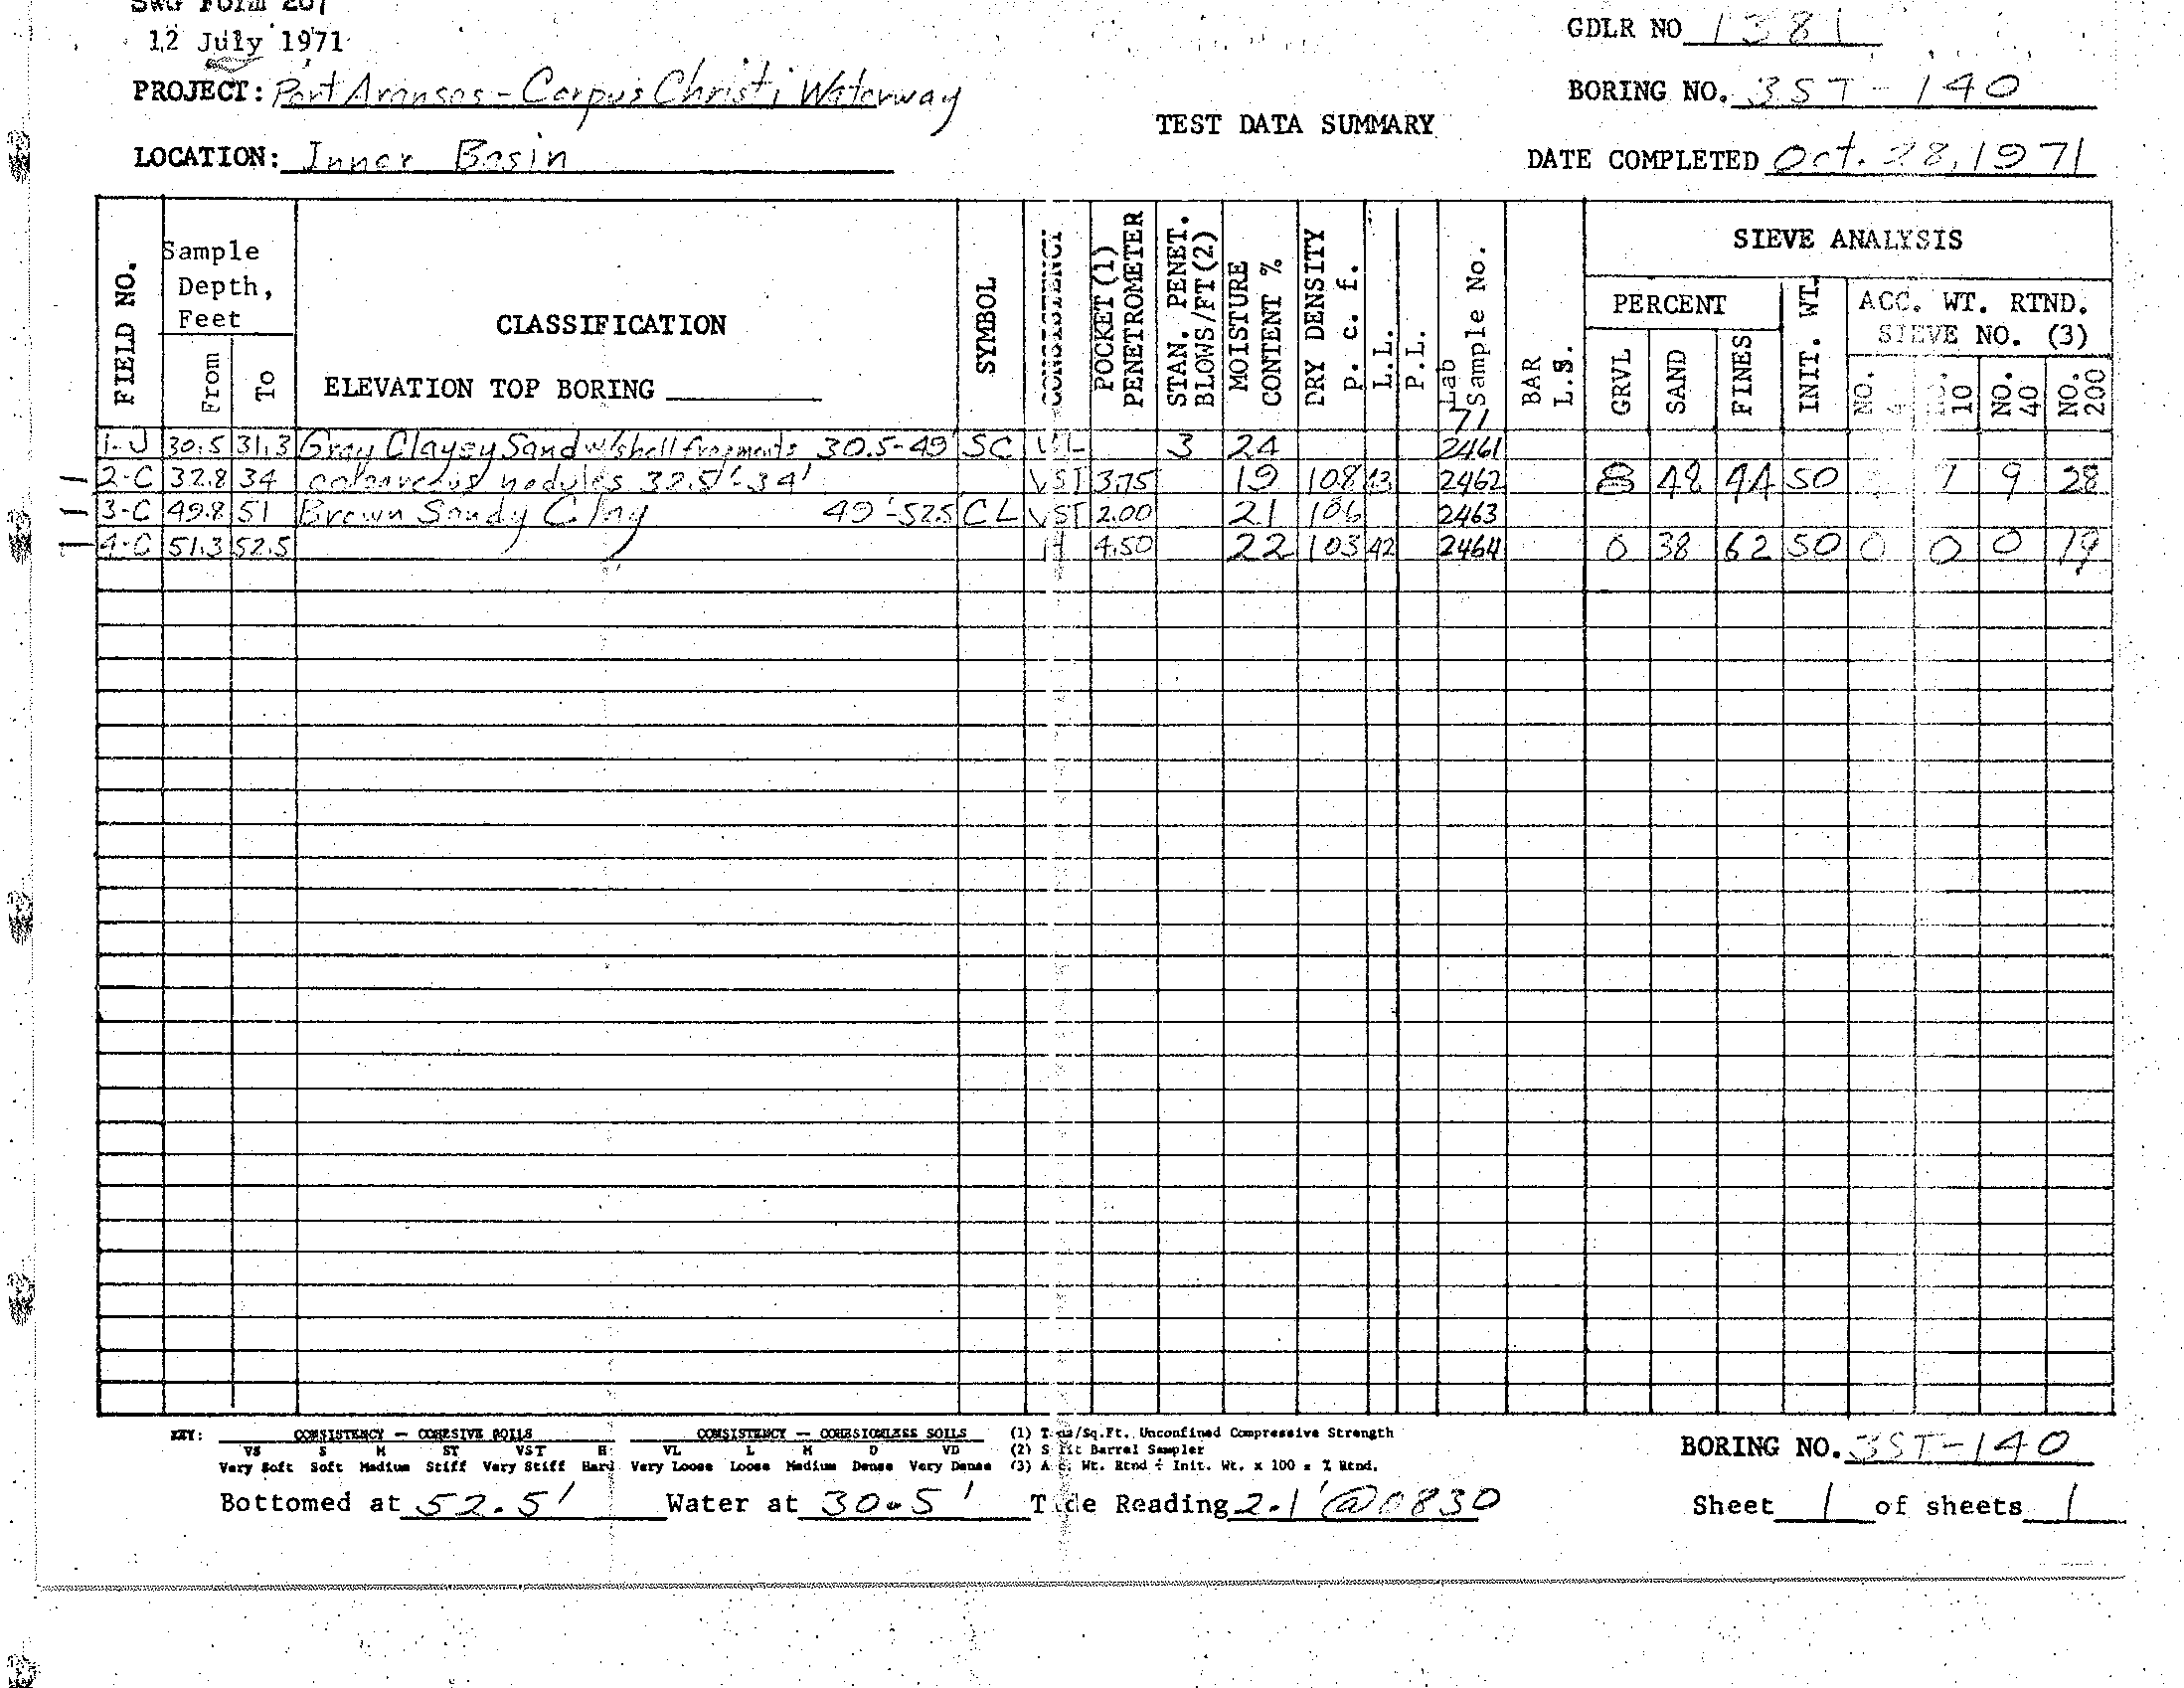 SWG Form 207
12 July 1971
GDLR NO 1381
PROJECT: Port Aransas - Corpus Christi Waterway
BORING NO. 3ST-140
TEST DATA SUMMARY
LOCATION: Inner Basin
DATE COMPLETED Oct. 28, 1971
FIELD NO.
Sample Depth, Feet
From
To
CLASSIFICATION
ELEVATION TOP BORING
SYMBOL
CONSISTENCY
POCKET (1) PENETROMETER
STAN. PENET. BLOWS/FT (2)
MOISTURE CONTENT %
DRY DENSITY P. c. f.
L.L.
P.L.
Lab Sample No.
71
BAR L.S.
SIEVE ANALYSIS
PERCENT
GRVL
SAND
FINES
INIT. WT.
ACC. WT. RTND.
SIEVE NO. (3)
NO.
NO. 10
NO. 40
NO. 200
1-J 30.5 31.3 Gray Clayey Sand w/shell fragments 30.5-49' SC VL 3 24 2461
2-C 32.8 34 calcareous nodules 32.5'-34' VST 3.75 19 108 2462 8 48 44 50 9 28
3-C 49.8 51 Brown Sandy Clay 49'-52.5 CL VST 2.00 21 106 2463
4-C 51.3 52.5 H 4.50 22 103 42 2464 0 38 62 50 0 0 0 19
KEY: CONSISTENCY — COHESIVE SOILS CONSISTENCY — COHESIONLESS SOILS (1) Tons/Sq.Ft. Unconfined Compressive Strength
VS S M ST VST H VL L M D VD (2) Split Barrel Sampler
Very Soft Soft Medium Stiff Very Stiff Hard Very Loose Loose Medium Dense Very Dense (3) Acc. Wt. Rtnd ÷ Init. Wt. x 100 = % Rtnd.
BORING NO. 3ST-140
Bottomed at 52.5' Water at 30.5' Tide Reading 2.1' @0830 Sheet 1 of sheets 1